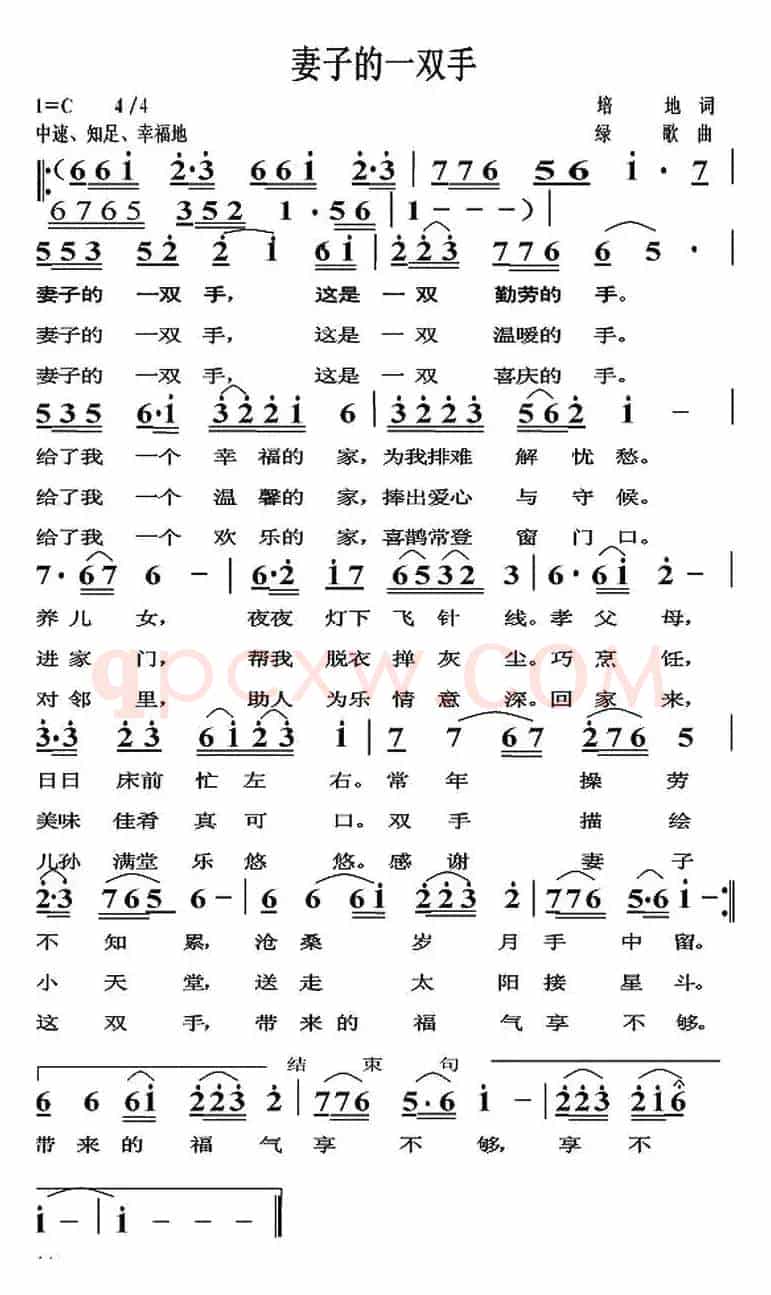 妻子的一双手
1=C 4/4 培 地 词
中速、知足、幸福地 绿 歌 曲
‖:(6 6 1̇ 2̇·3̇ 6 6 1̇ 2̇·3̇ | 7 7 6 5 6 1̇ · 7 |
6 7 6 5 3 5 2 1 · 5 6 | 1 - - - ) |
5 5 3 5 2̇ 2̇ 1̇ 6 1̇ | 2̇ 2̇ 3̇ 7 7 6 6 5 · |
妻子的 一双 手, 这是 一 双 勤劳的 手。
妻子的 一双 手, 这是 一 双 温暖的 手。
妻子的 一双 手, 这是 一 双 喜庆的 手。
5 3 5 6·1̇ 3̇ 2̇ 2̇ 1̇ 6 | 3̇ 2̇ 2̇ 3̇ 5 6 2̇ 1̇ - |
给了我 一个 幸 福的 家, 为我排难 解 忧 愁。
给了我 一个 温 馨的 家, 捧出爱心 与 守 候。
给了我 一个 欢 乐的 家, 喜鹊常登 窗 门 口。
7 · 6 7 6 - | 6·2̇ 1̇ 7 6 5 3 2 3 | 6 · 6 1̇ 2̇ - |
养 儿 女, 夜夜 灯下 飞 针 线。孝 父 母,
进 家 门, 帮我 脱衣 掸 灰 尘。巧 烹 饪,
对 邻 里, 助人 为乐 情 意 深。回 家 来,
qpcxw.COM
3̇·3̇ 2̇ 3̇ 6 1̇ 2̇ 3̇ 1̇ | 7 7 6 7 2̇ 7 6 5 |
日日 床前 忙 左 右。常 年 操 劳
美味 佳肴 真 可 口。双 手 描 绘
儿孙 满堂 乐 悠 悠。感 谢 妻 子
2̇·3̇ 7 6 5 6 - | 6 6 6 1̇ 2̇ 2̇ 3̇ 2̇ | 7 7 6 5·6 1̇ - :‖
不 知 累, 沧 桑 岁 月 手 中 留。
小 天 堂, 送 走 太 阳 接 星 斗。
这 双 手, 带 来 的 福 气 享 不 够。
结 束 句
6 6 6 1̇ 2̇ 2̇ 3̇ 2̇ | 7 7 6 5·6 1̇ - | 2̇ 2̇ 3̇ 2̇ 1̇ 6 |
带 来 的 福 气 享 不 够, 享 不
1̇ - | 1̇ - - - ‖